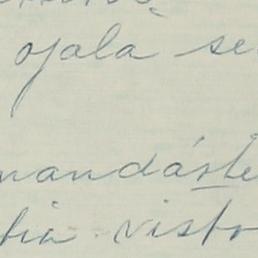 ojala se
mandáste
tia visto